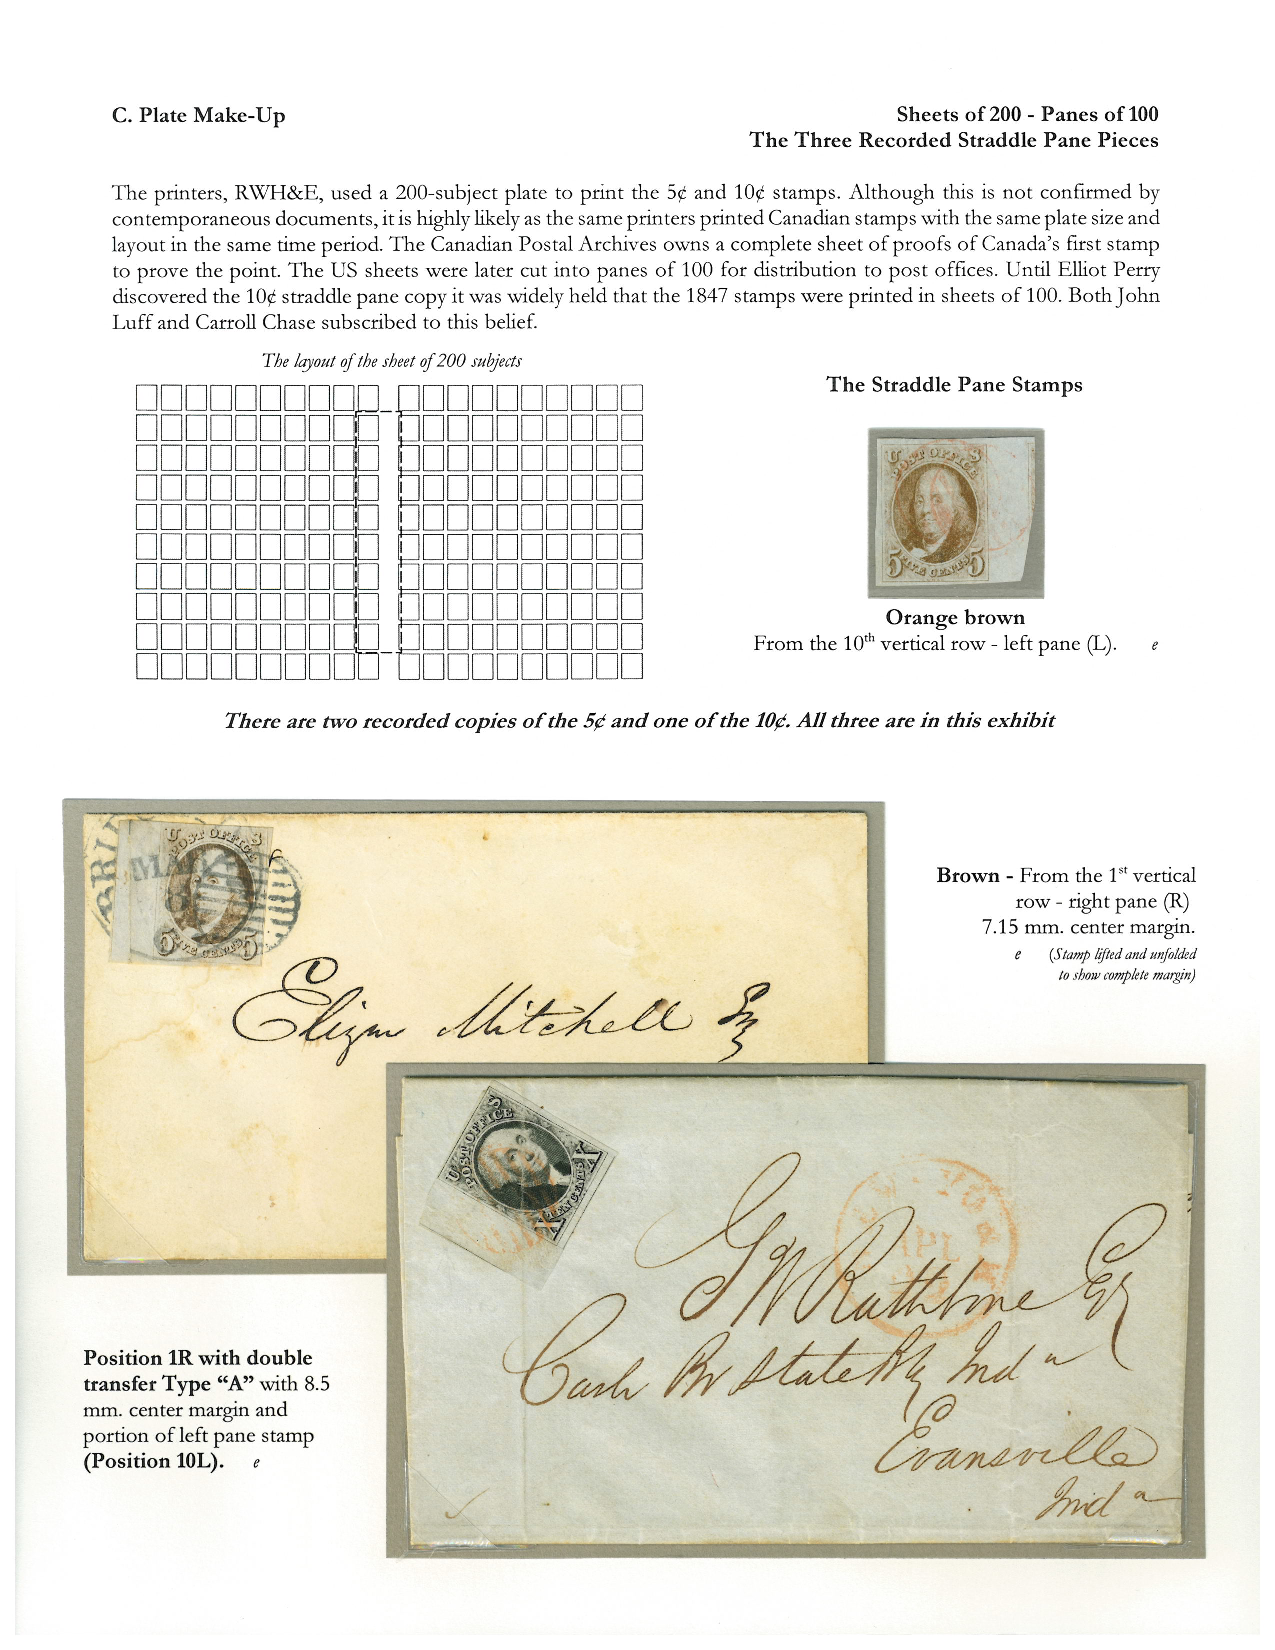 C. Plate Make-Up
Sheets of 200 - Panes of 100
The Three Recorded Straddle Pane Pieces
The printers, RWH&E, used a 200-subject plate to print the 5¢ and 10¢ stamps. Although this is not confirmed by
contemporaneous documents, it is highly likely as the same printers printed Canadian stamps with the same plate size and
layout in the same time period. The Canadian Postal Archives owns a complete sheet of proofs of Canada's first stamp
to prove the point. The US sheets were later cut into panes of 100 for distribution to post offices. Until Elliot Perry
discovered the 10¢ straddle pane copy it was widely held that the 1847 stamps were printed in sheets of 100. Both John
Luff and Carroll Chase subscribed to this belief.
The layout of the sheet of 200 subjects
The Straddle Pane Stamps
U S
POST OFFICE
5 FIVE CENTS 5
Orange brown
From the 10th vertical row - left pane (L). e
There are two recorded copies of the 5¢ and one of the 10¢. All three are in this exhibit
U S
POST OFFICE
5 FIVE CENTS 5
MAR
Brown - From the 1st vertical
row - right pane (R)
7.15 mm. center margin.
e (Stamp lifted and unfolded
to show complete margin)
Elizur Mitchell Esq
U S
POST OFFICE
X TEN CENTS X
APL
G W Rathbone Esq
Cash Br State Bk Ind a
Evansville
Ind a
Position 1R with double
transfer Type “A” with 8.5
mm. center margin and
portion of left pane stamp
(Position 10L). e